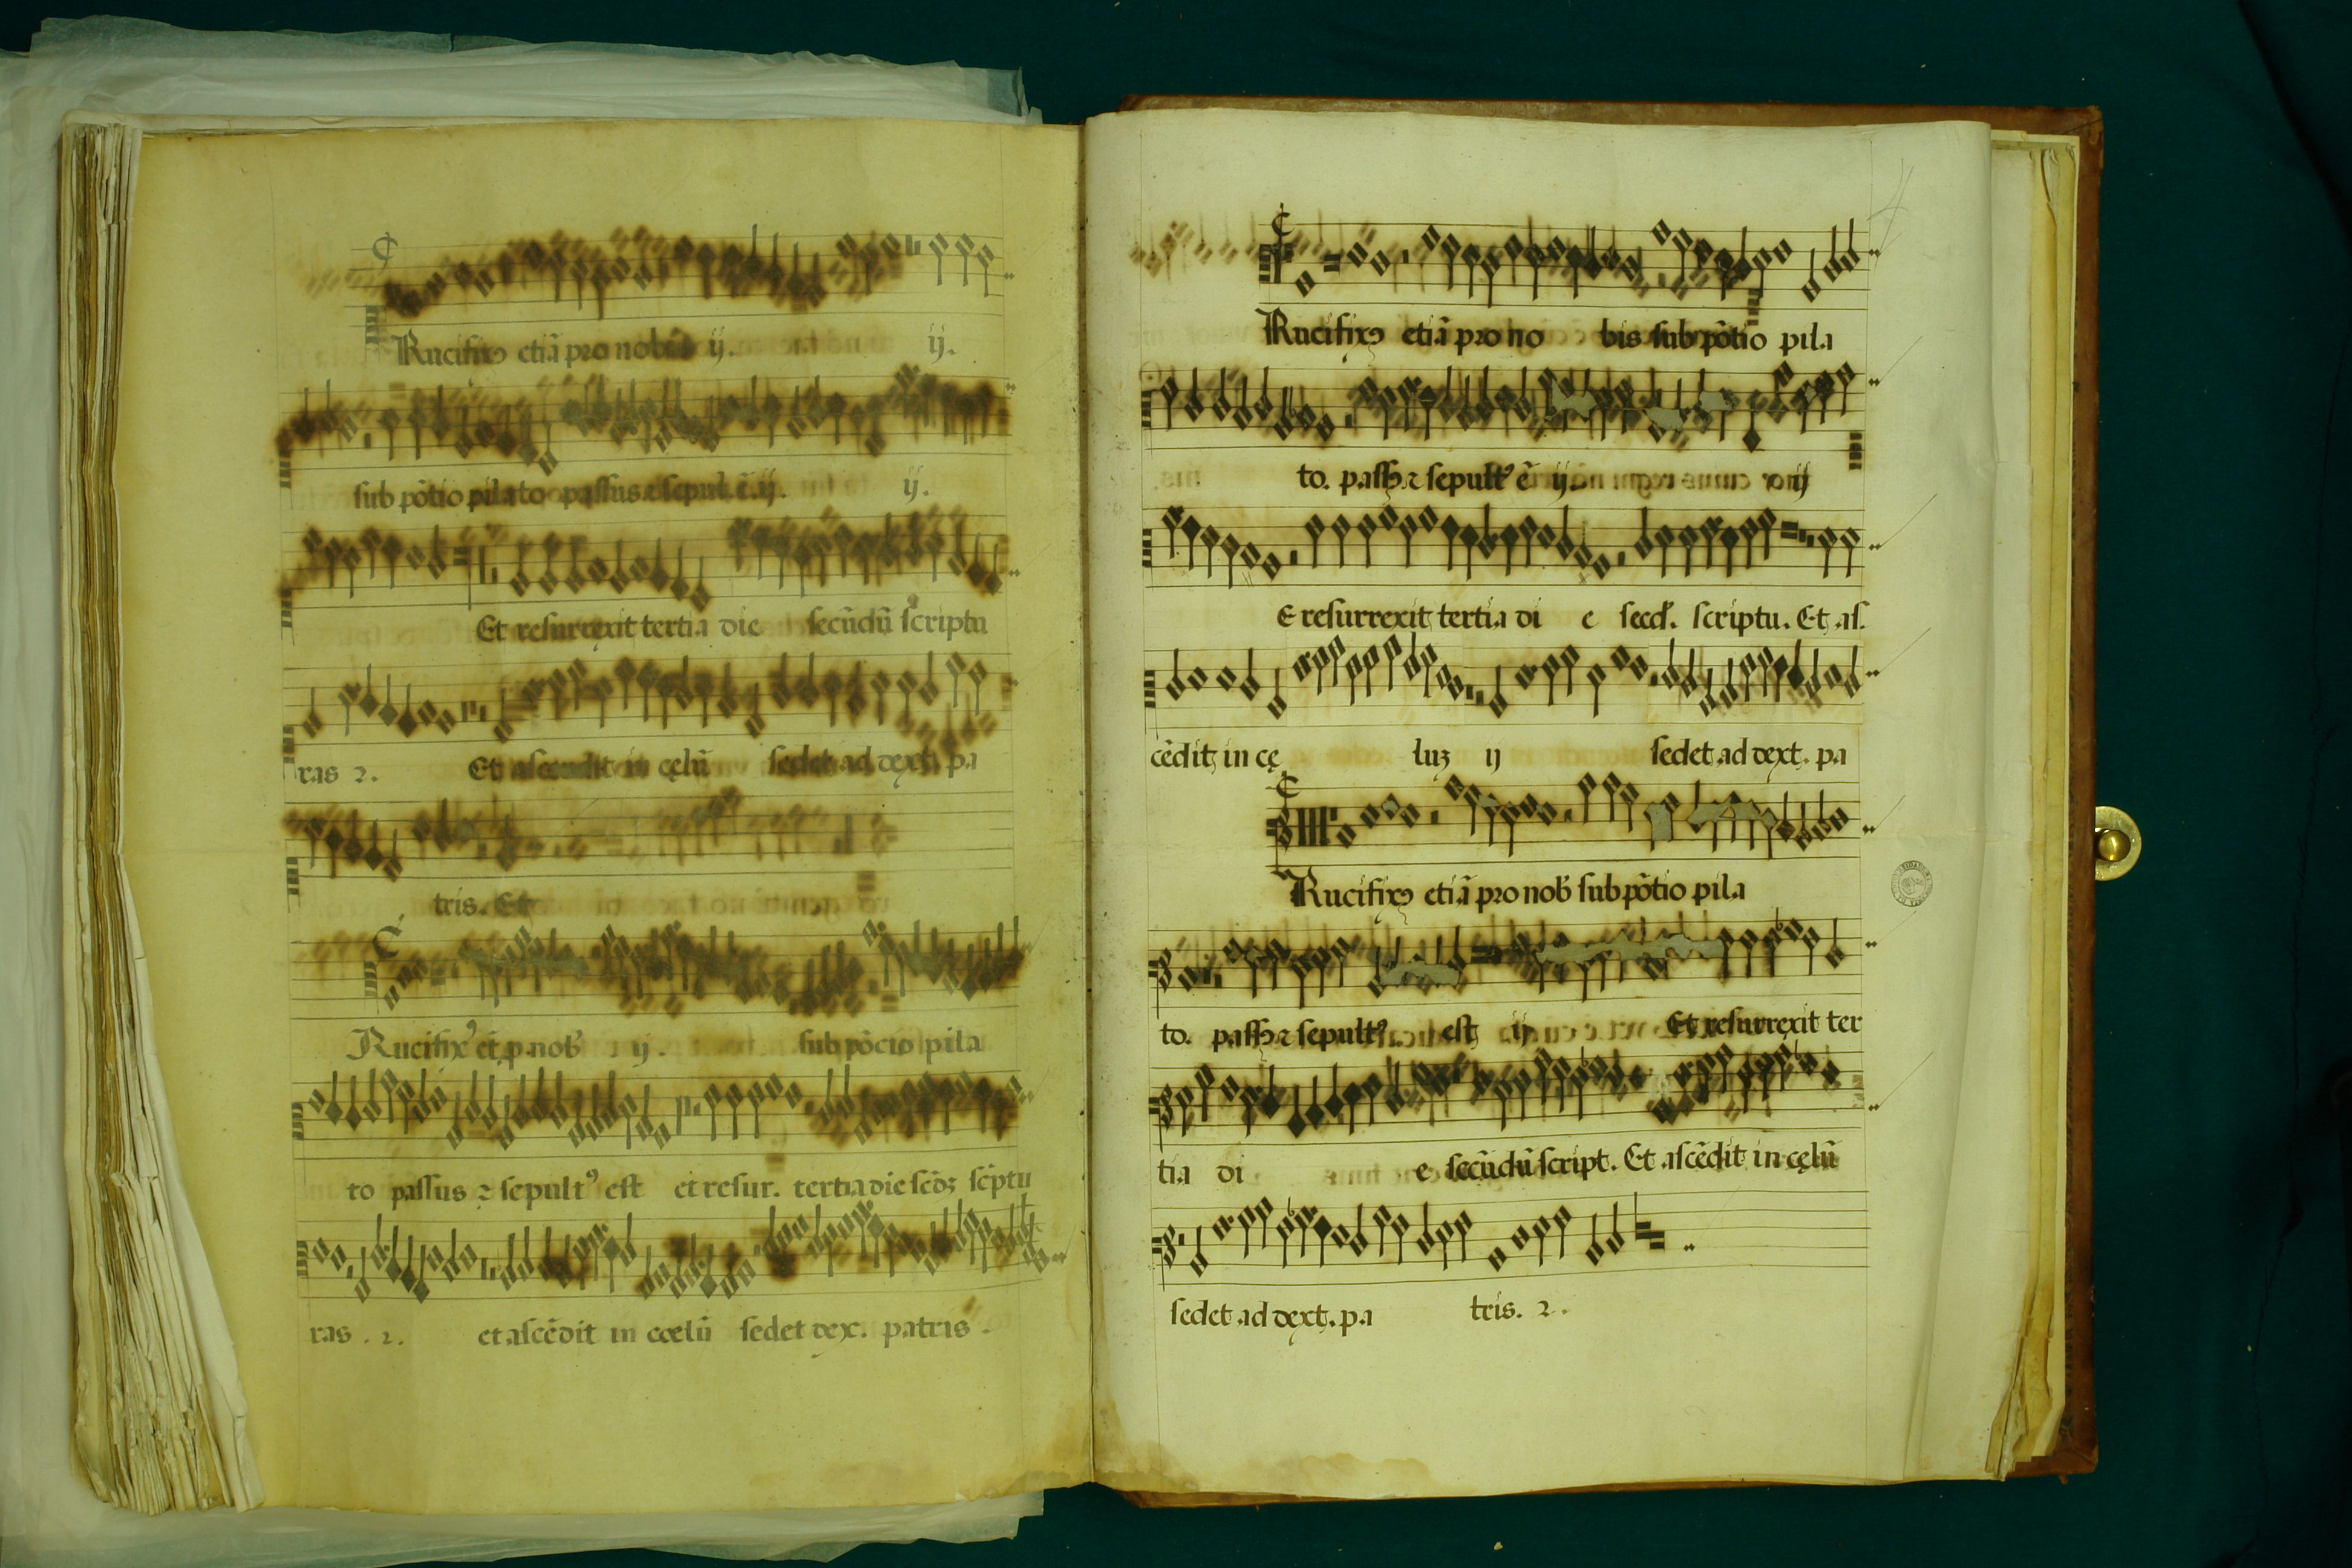 Rucifixꝰ etiā pro nobis ij. ij.
sub pōtio pilato passus ⁊ sepul. ē. ij. ij.
Et resurrexit tertia die secūdū scriptu
ras 2. Et ascendit in cęlū sedet ad dext. pa
tris. Et
Rucifixꝰ et p nob ij. sub pōcio pila
to passus ⁊ sepultꝰ est et resur. tertia die scdꝫ scptu
ras . 2. et ascēdit in cœlū sedet dex. patris.
Rucifixꝰ etiā pro no bis sub pōtio pila
to. passꝰ ⁊ sepultꝰ ē ij. ij
E resurrexit tertia di e secd. scriptu. Et as.
cēdit in cę luꝫ ij sedet ad dext. pa
Rucifixꝰ etiā pro nob sub pōtio pila
to. passꝰ ⁊ sepultꝰ est ij Et resurrexit ter
tia di e secūdū script. Et ascēdit in cęlū
sedet ad dext. pa tris. 2.